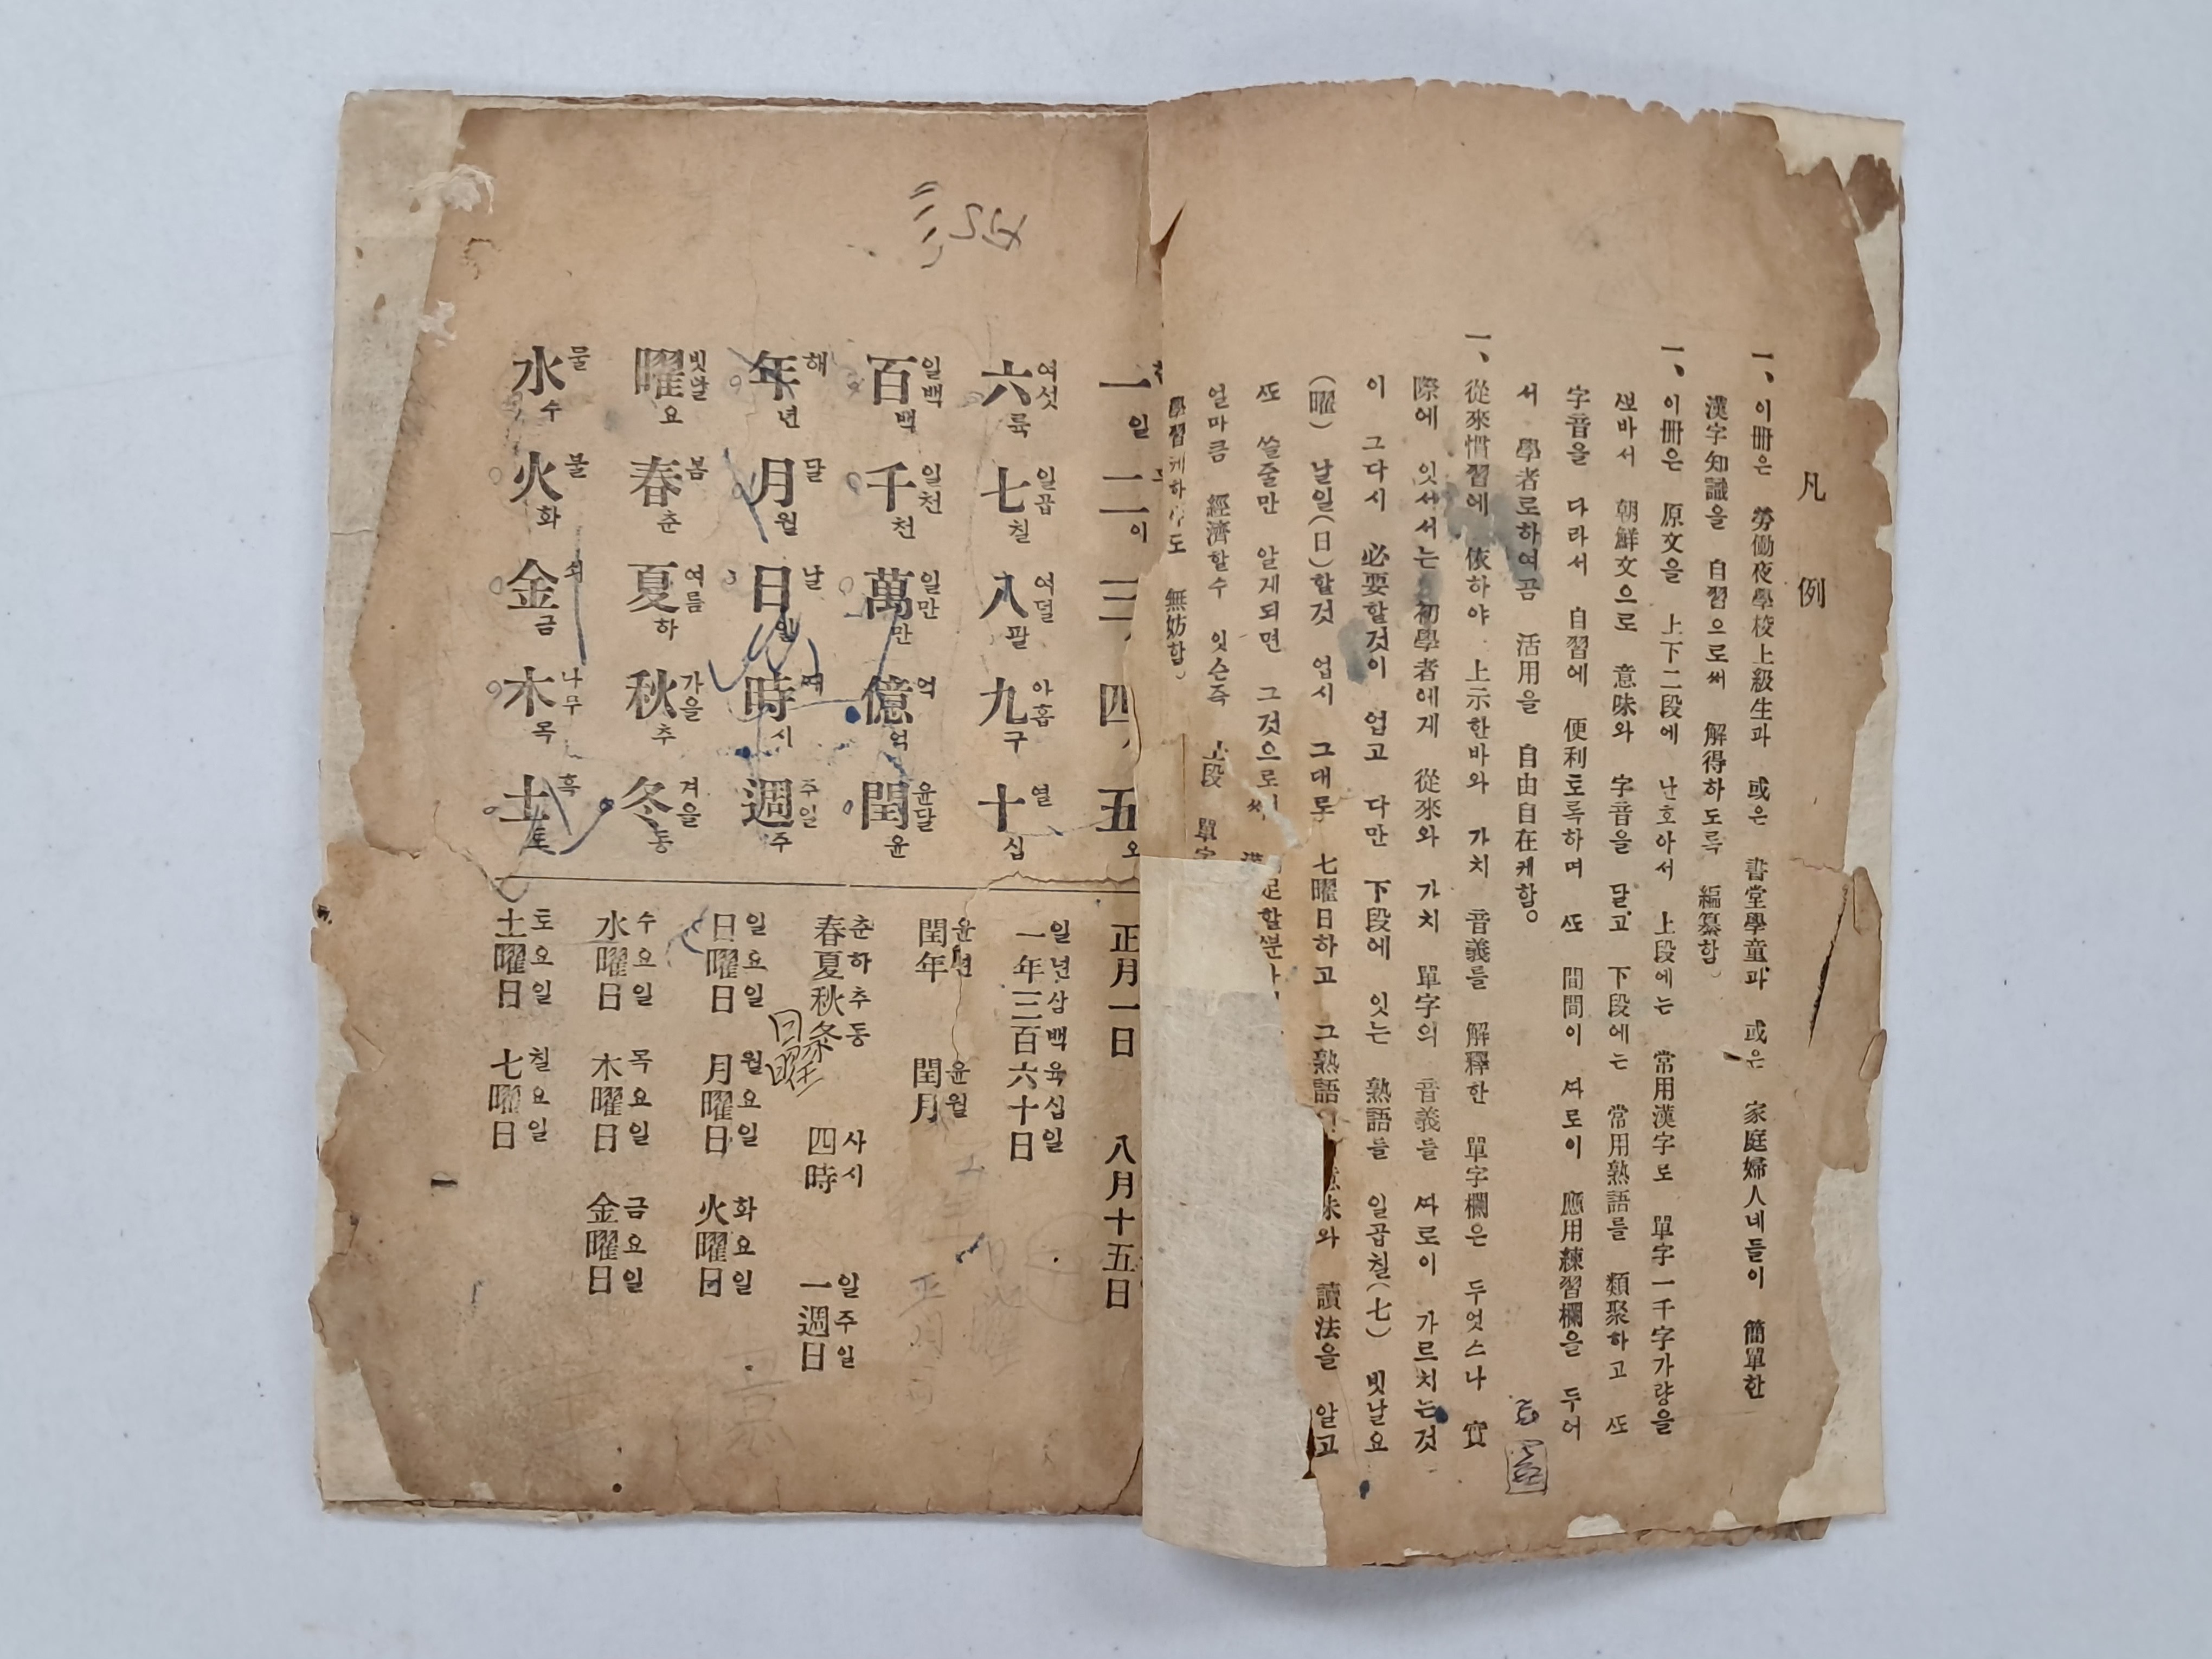 凡例
一、이冊은 勞働夜學校上級生과 或은 書堂學童과 或은 家庭婦人네들이 簡單한
漢字知識을 自習으로써 解得하도록 編纂함
一、이冊은 原文을 上下二段에 난호아서 上段에는 常用漢字로 單字一千字가량을
ᄲᅩ바서 朝鮮文으로 意味와 字音을 달고 下段에는 常用熟語를 類聚하고 ᄯᅩ
字音을 다라서 自習에 便利토록하며 ᄯᅩ 間間이 ᄯᅡ로이 應用練習欄을 두어
서 學者로하여곰 活用을 自由自在케함。
一、從來慣習에 依하야 上示한바와 가치 音義를 解釋한 單字欄은 두엇스나 實
際에 잇서서는 初學者에게 從來와 가치 單字의 音義들 ᄯᅡ로이 가르치는것
이 그다시 必要할것이 업고 다만 下段에 잇는 熟語들 일곱칠(七) 빗날요
(曜) 날일(日)할것 업시 그대로 七曜日하고 그熟語의 意味와 讀法을 알고
ᄯᅩ 쓸줄만 알게되면 그것으로써
얼마큼 經濟할수 잇슨즉 上段 單字
學習케하 도 無妨함。
一 일 二 이 三 四 五 오
六 여섯 륙 七 일곱 칠 八 여덜 팔 九 아홉 구 十 열 십
百 일백 백 千 일천 천 萬 일만 만 億 억 억 閏 윤달 윤
年 해 년 月 달 월 日 날 일 時 ᄯᅢ 시 週 주일 주
曜 빗날 요 春 봄 춘 夏 여름 하 秋 가을 추 冬 겨을 동
水 물 수 火 불 화 金 쇠 금 木 나무 목 土 흑 토
正月一日 八月十五日
一年三百六十日 일년삼백육십일
閏年 윤년 閏月 윤월
春夏秋冬 춘하추동 四時 사시 一週日 일주일
日曜
日曜日 일요일 月曜日 월요일 火曜日 화요일
水曜日 수요일 木曜日 목요일 金曜日 금요일
土曜日 토요일 七曜日 칠요일
一